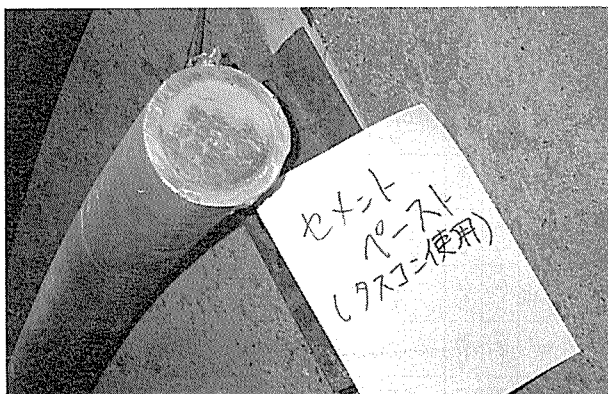 セメント
ペースト
(タスコン使用)